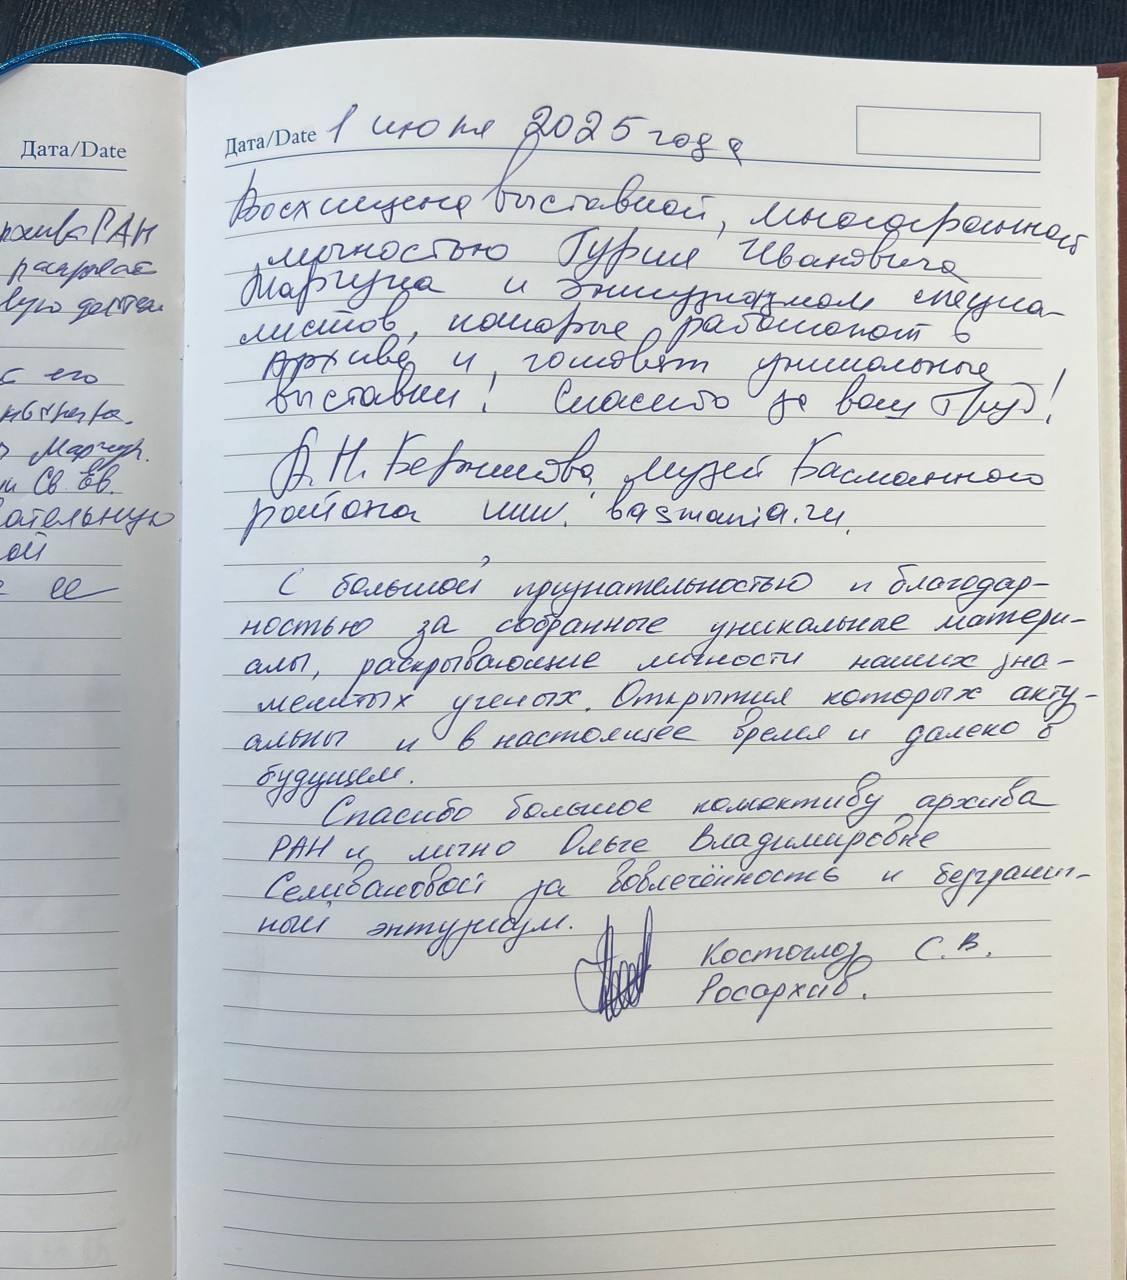 Дата/Date
рхива РАН
раскрывает
с его
Св. Ев.
ательную
ой
ее
Дата/Date 1 июля 2025 года
Восхищена выставкой, многогранной
личностью Гурия Ивановича
Марчука и энтузиазмом специа-
листов, которые работают в
архиве и готовят уникальные
выставки! Спасибо за ваш труд!
А.Н. музей Басманного
района www. basmania.ru.
С большой признательностью и благодар-
ностью за собранные уникальные матери-
алы, раскрывающие личности наших зна-
менитых ученых. Открытия которых акту-
альны и в настоящее время и далеко в
будущем.
Спасибо большое коллективу архива
РАН и лично Ольге Владимировне
Селивановой за вовлечённость и безгранич-
ный энтузиазм.
Костоглод С.В.
Росархив.